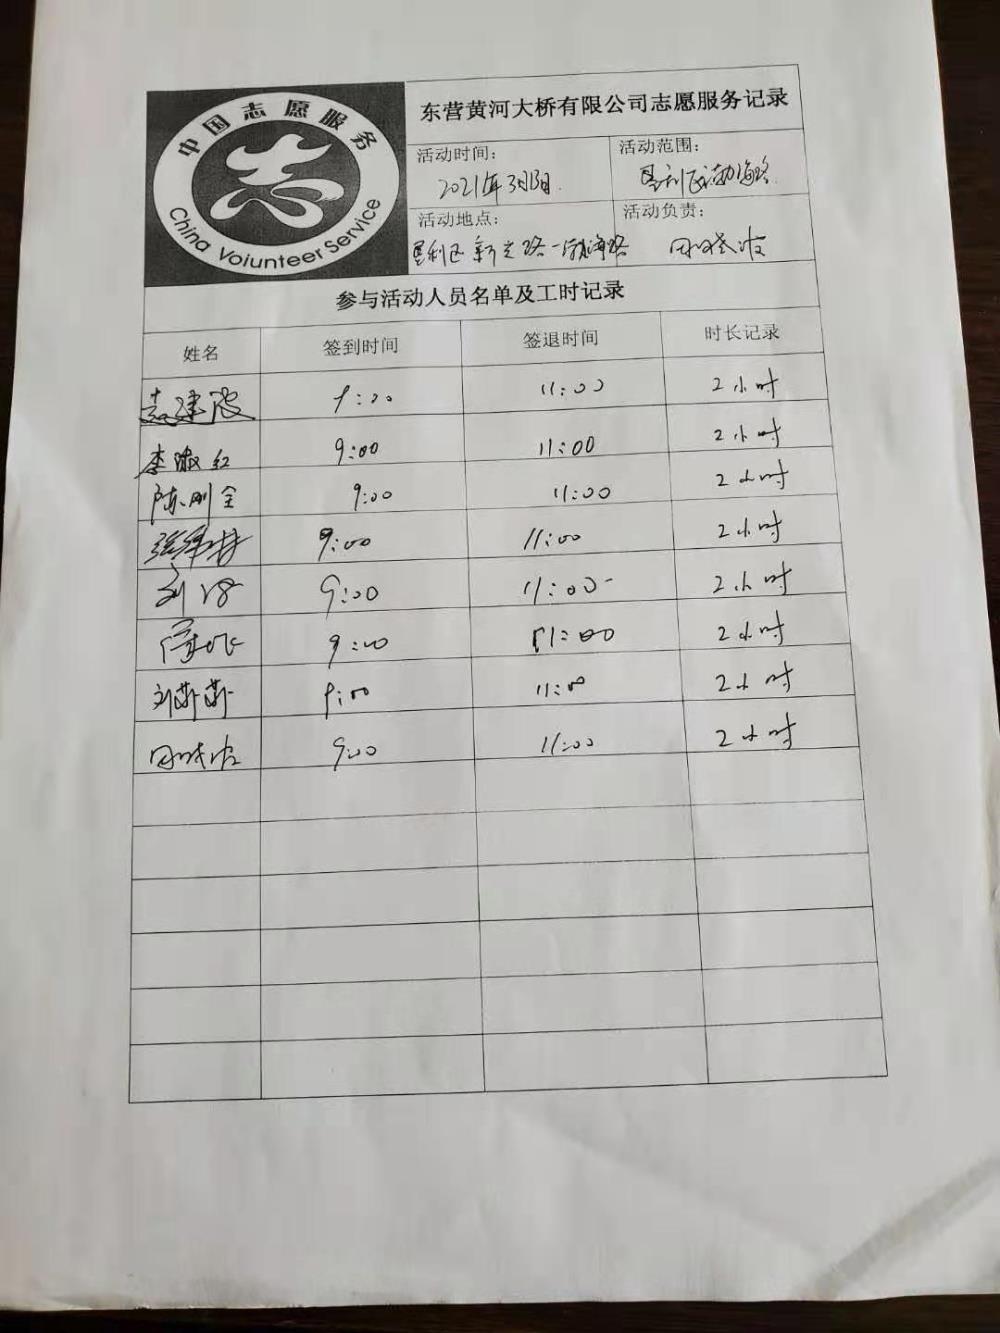 中国志愿服务
志
China Voiunteer Service
东营黄河大桥有限公司志愿服务记录
活动时间：
2021年3月13日.
活动范围：
垦利区渤海路
活动地点：
垦利区新兴路一渤海路
活动负责：
参与活动人员名单及工时记录
姓名 签到时间 签退时间 时长记录
9:00 11:00 2小时
李淑红 9:00 11:00 2小时
陈刚全 9:00 11:00 2小时
9:00 11:00 2小时
刘 9:00 11:00 2小时
9:00 11:00 2小时
刘茹茹 9:00 11:00 2小时
9:00 11:00 2小时